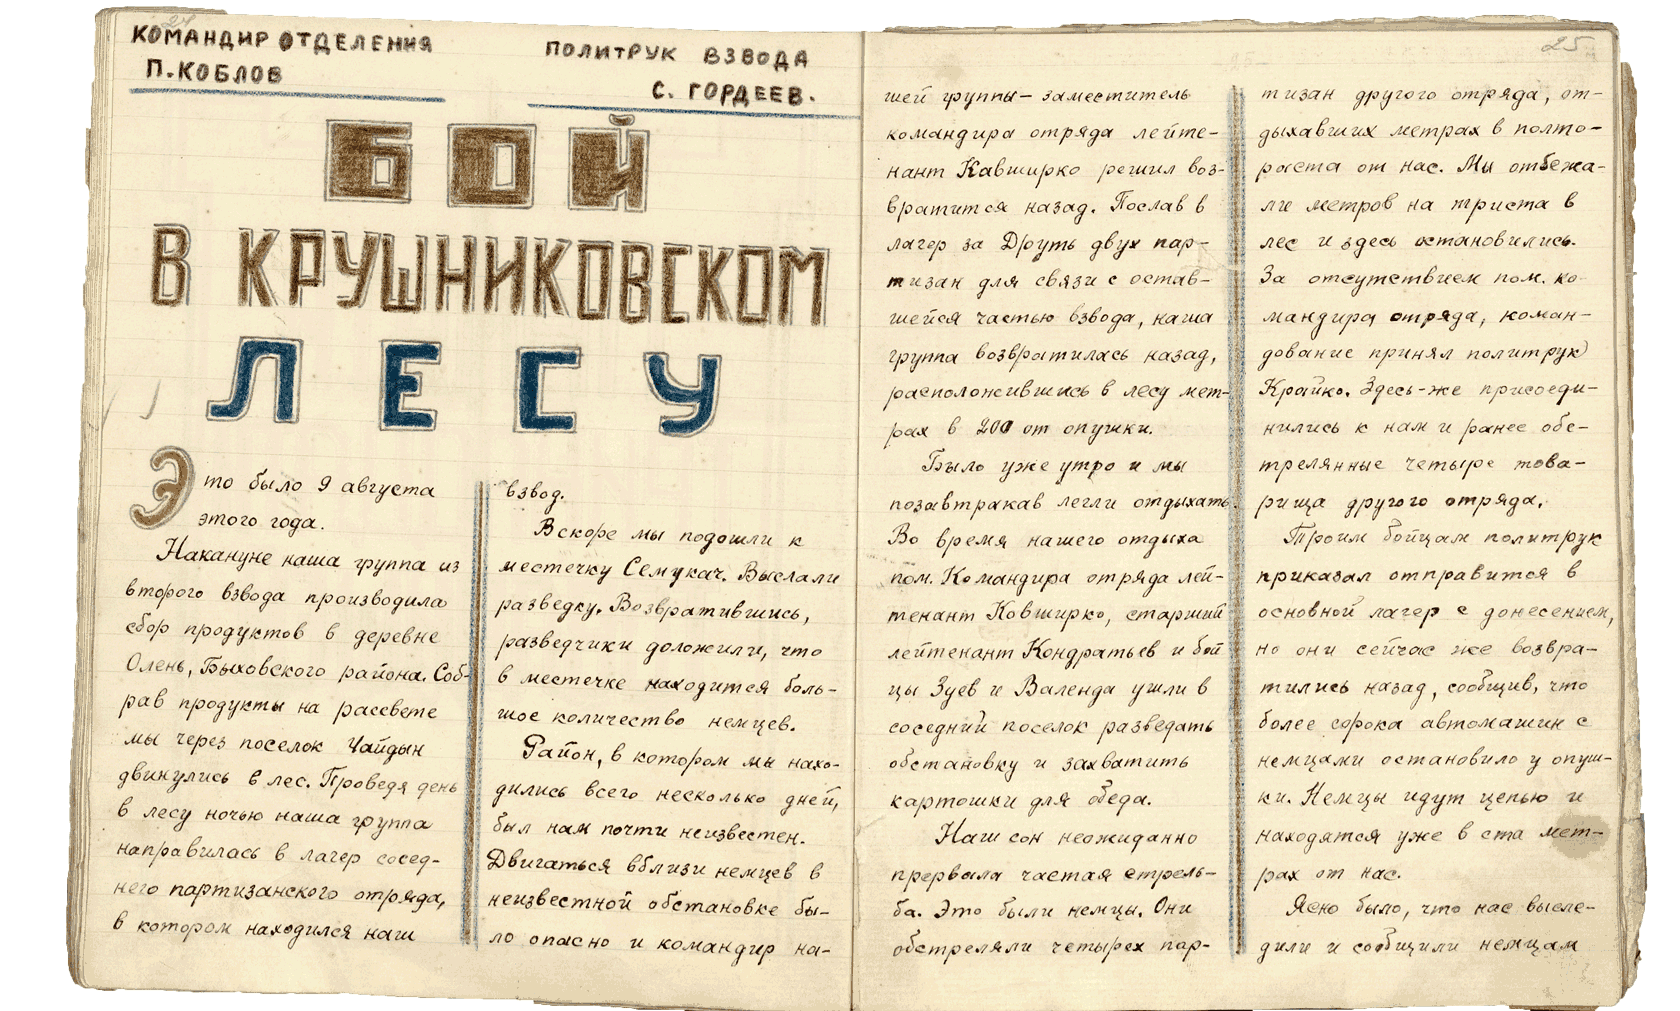 24
КОМАНДИР ОТДЕЛЕНИЯ
П. КОБЛОВ
ПОЛИТРУК ВЗВОДА
С. ГОРДЕЕВ.
БОЙ
В КРУШНИКОВСКОМ
ЛЕСУ
Это было 9 августа
этого года.
Накануне наша группа из
второго взвода производила
сбор продуктов в деревне
Олень, Быховского района. Соб-
рав продукты на рассвете
мы через поселок Чайдын
двинулись в лес. Проведя день
в лесу ночью наша группа
направилась в лагер сосед-
него партизанского отряда,
в котором находился наш
взвод.
Вскоре мы подошли к
местечку Семукач. Выслали
разведку. Возвратившись,
разведчики доложили, что
в местечке находится боль-
шое количество немцев.
Район, в котором мы нахо-
дились всего несколько дней,
был нам почти неизвестен.
Двигаться вблизи немцев в
неизвестной обстановке бы-
ло опасно и командир на-
25
шей группы – заместитель
командира отряда лейте-
нант Кавширко решил воз-
вратится назад. Послав в
лагер за Друть двух пар-
тизан для связи с остав-
шейся частью взвода, наша
группа возвратилась назад,
расположившись в лесу мет-
рах в 200 от опушки.
Было уже утро и мы
позавтракав легли отдыхать.
Во время нашего отдыха
пом. Командира отряда лей-
тенант Ковширко, старший
лейтенант Кондратьев и бой
цы Зуев и Валенда ушли в
соседний поселок разведать
обстановку и захватить
картошки для обеда.
Наш сон неожиданно
прервала частая стрель-
ба. Это были немцы. Они
обстреляли четырех пар-
тизан другого отряда, от-
дыхавших метрах в полто-
раста от нас. Мы отбежа-
ли метров на триста в
лес и здесь остановились.
За отсутствием пом. ко-
мандира отряда, коман-
дование принял политрук
Крайко. Здесь-же присоеди-
нились к нам и ранее обс-
трелянные четыре това-
рища другого отряда.
Троим бойцам политрук
приказал отправится в
основной лагер с донесением,
но они сейчас же возвра-
тились назад, сообщив, что
более сорока автомашин с
немцами остановило у опуш-
ки. Немцы идут цепью и
находятся уже в ста мет-
рах от нас.
Ясно было, что нас высле-
дили и сообщили немцам